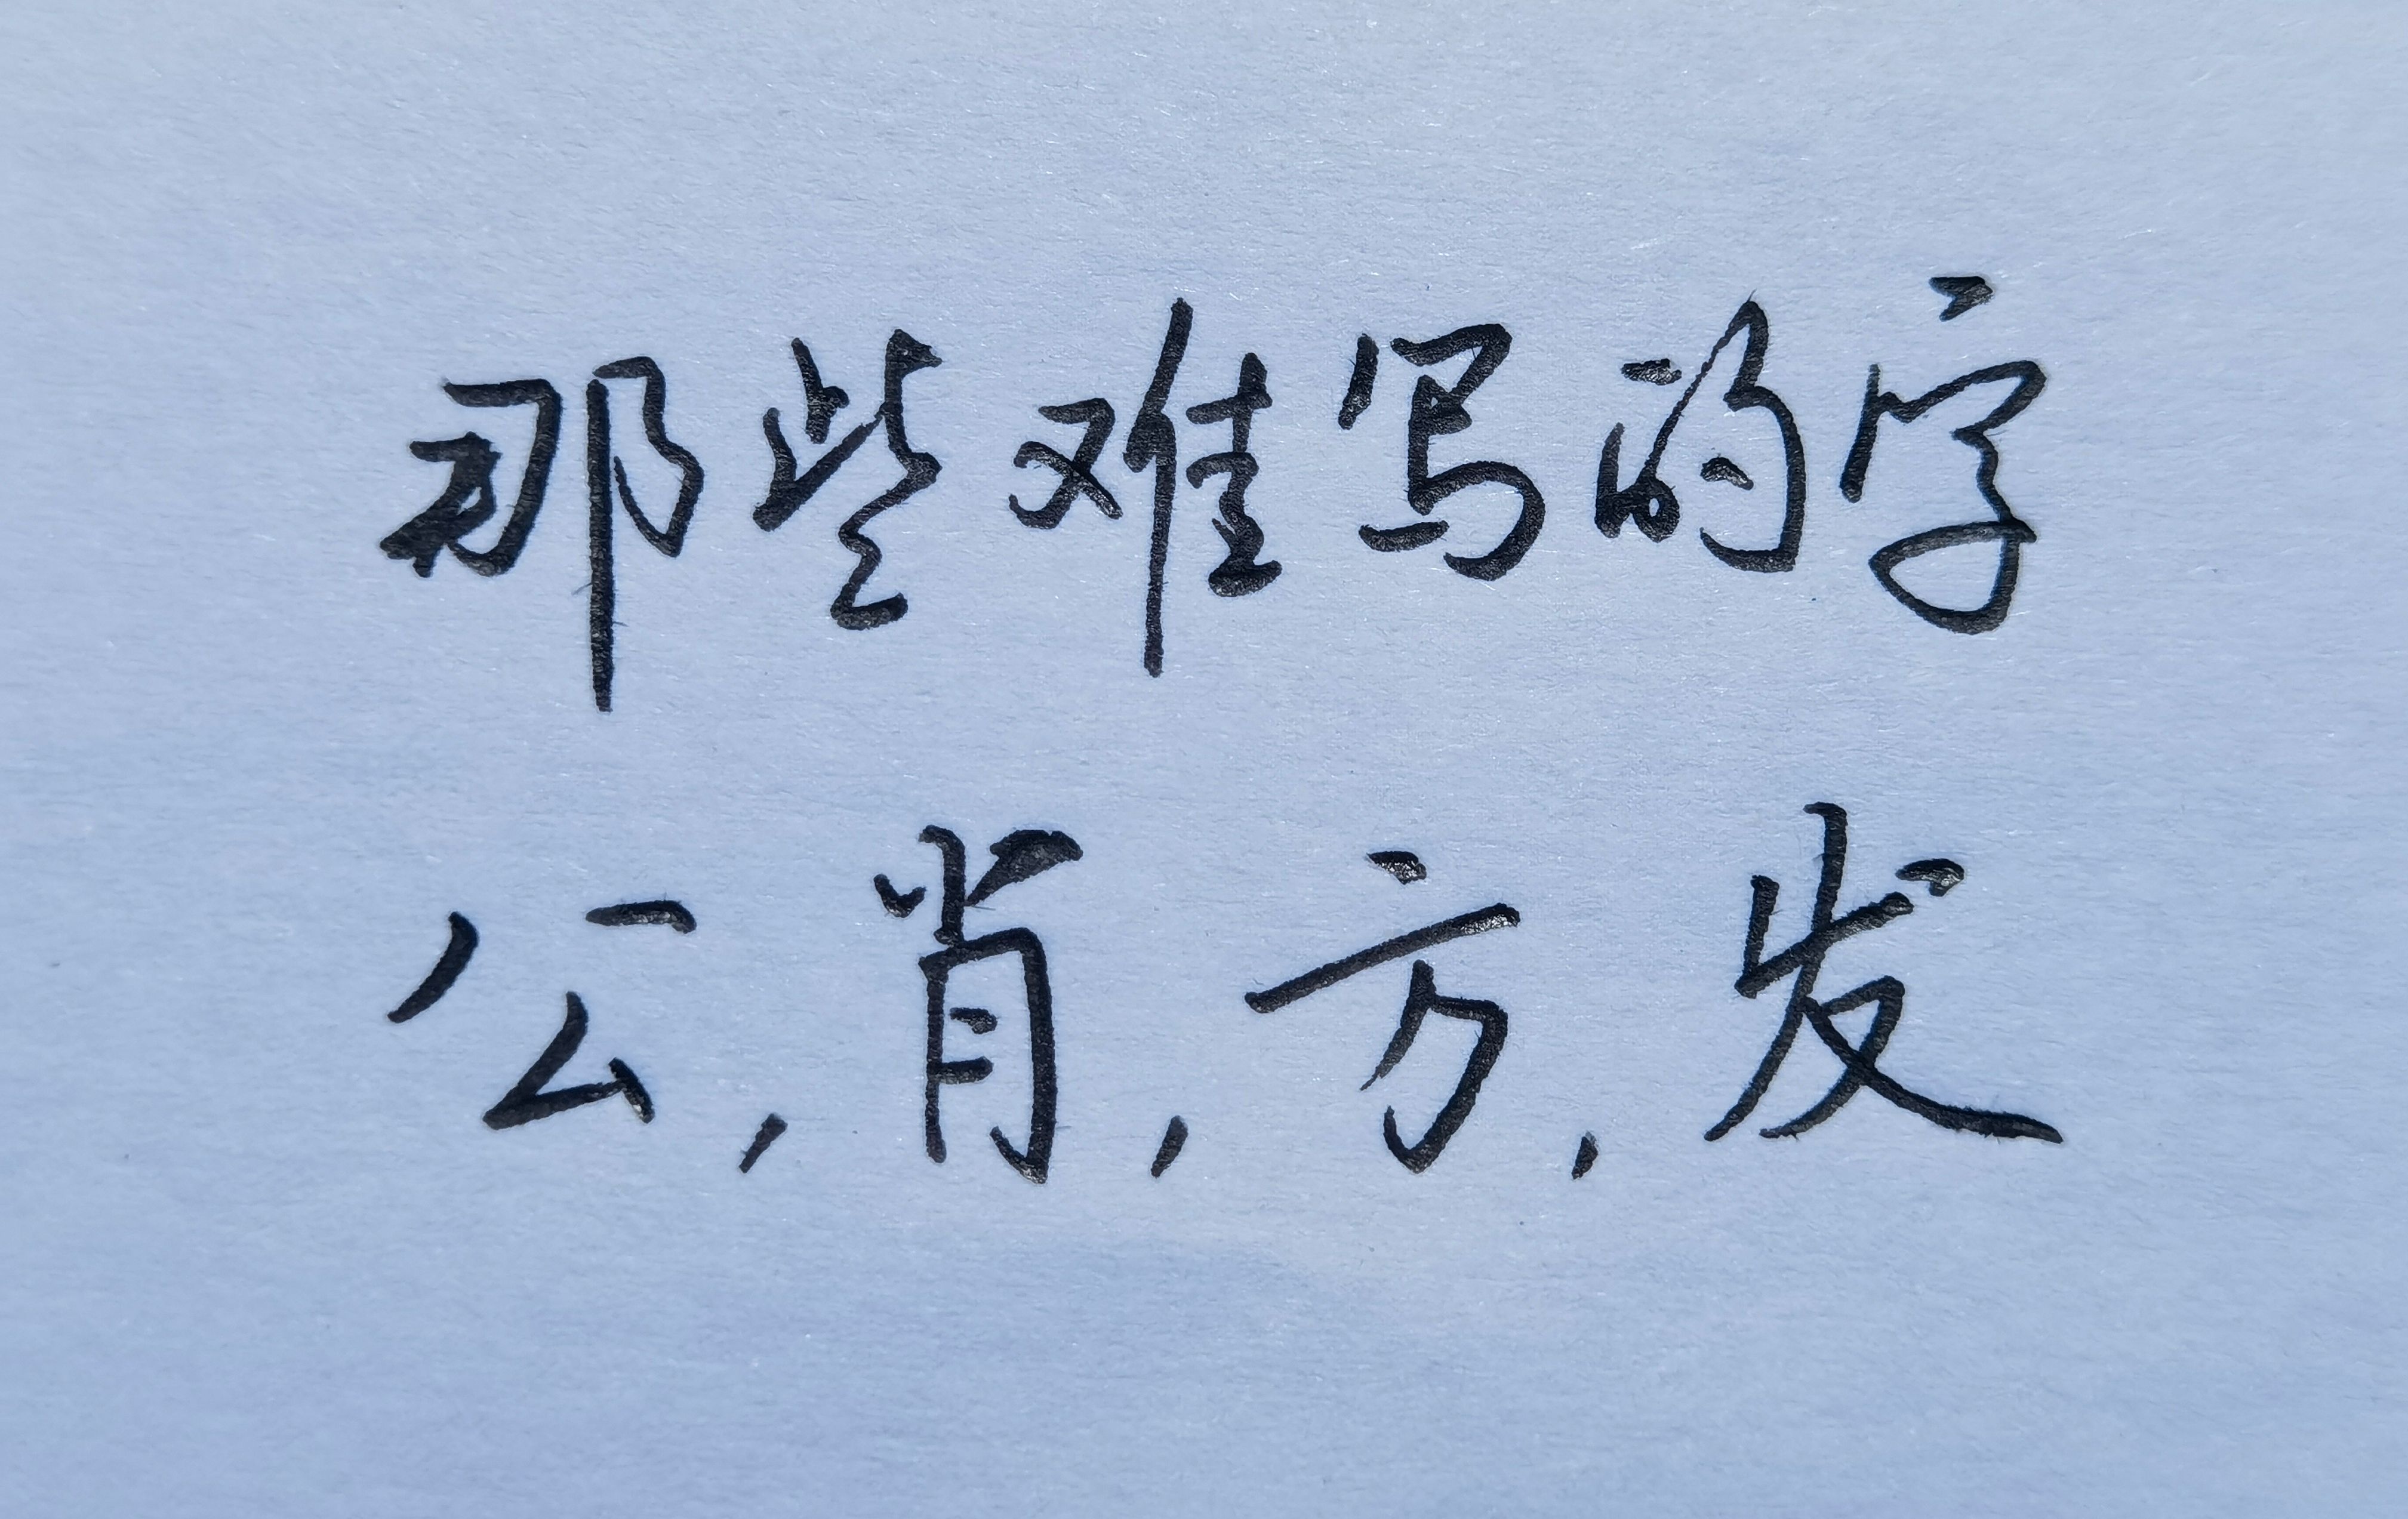 那些难写的字
公，肖，方，发